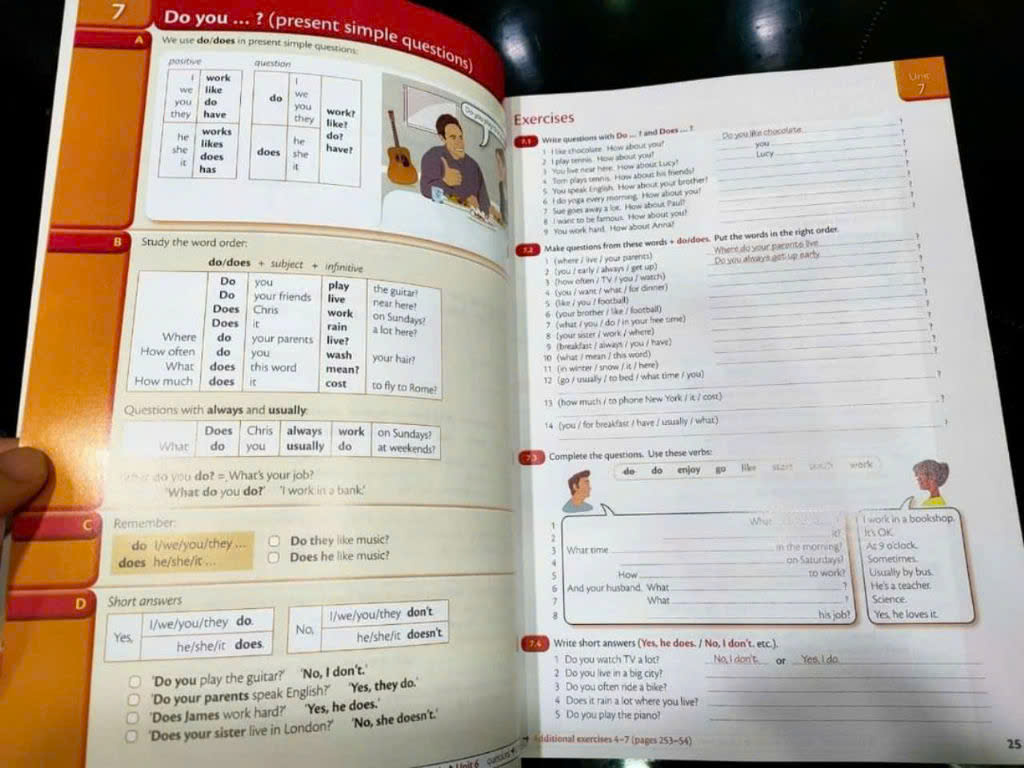 7
Do you ... ? (present simple questions)
A
We use do/does in present simple questions:
positive
question
I
we
you
they
work
like
do
have
he
she
it
works
likes
does
has
do
I
we
you
they
does
he
she
it
work?
like?
do?
have?
Do you play the
B
Study the word order:
do/does + subject + infinitive
Do you play the guitar?
Do your friends live near here?
Does Chris work on Sundays?
Does it rain a lot here?
Where do your parents live?
How often do you wash your hair?
What does this word mean?
How much does it cost to fly to Rome?
Questions with always and usually:
Does Chris always work on Sundays?
What do you usually do at weekends?
What do you do? = What's your job?
'What do you do?' 'I work in a bank.'
C
Remember:
do I/we/you/they ...
does he/she/it ...
Do they like music?
Does he like music?
D
Short answers
Yes,
I/we/you/they do.
he/she/it does.
No,
I/we/you/they don't.
he/she/it doesn't.
'Do you play the guitar?' 'No, I don't.'
'Do your parents speak English?' 'Yes, they do.'
'Does James work hard?' 'Yes, he does.'
'Does your sister live in London?' 'No, she doesn't.'
Unit 6
Unit
7
Exercises
7.1 Write questions with Do ... ? and Does ... ?
1 I like chocolate. How about you? Do you like chocolate ?
2 I play tennis. How about you? you ?
3 You live near here. How about Lucy? Lucy ?
4 Tom plays tennis. How about his friends? ?
5 You speak English. How about your brother? ?
6 I do yoga every morning. How about you? ?
7 Sue goes away a lot. How about Paul? ?
8 I want to be famous. How about you? ?
9 You work hard. How about Anna? ?
7.2 Make questions from these words + do/does. Put the words in the right order.
1 (where / live / your parents) Where do your parents live ?
2 (you / early / always / get up) Do you always get up early ?
3 (how often / TV / you / watch) ?
4 (you / want / what / for dinner) ?
5 (like / you / football) ?
6 (your brother / like / football) ?
7 (what / you / do / in your free time) ?
8 (your sister / work / where) ?
9 (breakfast / always / you / have) ?
10 (what / mean / this word) ?
11 (in winter / snow / it / here) ?
12 (go / usually / to bed / what time / you) ?
13 (how much / to phone New York / it / cost) ?
14 (you / for breakfast / have / usually / what) ?
7.3 Complete the questions. Use these verbs:
do do enjoy go like start teach work
1 What ?
2 it?
3 What time in the morning?
4 on Saturdays?
5 How to work?
6 And your husband. What ?
7 What ?
8 his job?
I work in a bookshop.
It's OK.
At 9 o'clock.
Sometimes.
Usually by bus.
He's a teacher.
Science.
Yes, he loves it.
7.4 Write short answers (Yes, he does. / No, I don't. etc.).
1 Do you watch TV a lot? No, I don't. or Yes, I do.
2 Do you live in a big city?
3 Do you often ride a bike?
4 Does it rain a lot where you live?
5 Do you play the piano?
Additional exercises 4–7 (pages 253–54)
25